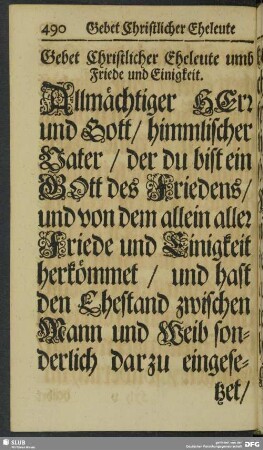 490 Gebet Christlicher Eheleute
Gebet Christlicher Eheleute umb
Friede und Einigkeit.
Allmächtiger HErr
und Gott/ himmlischer
Vater/ der du bist ein
GOtt des Friedens/
und von dem allein aller
Friede und Einigkeit
herkömmet/ und hast
den Ehestand zwischen
Mann und Weib son-
derlich darzu eingese-
tzet/
SLUB
DFG